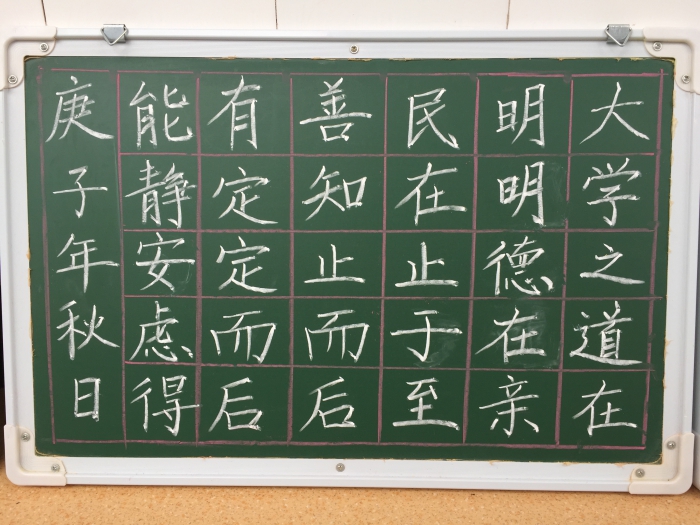 大学之道在
明明德在亲
民在止于至
善知止而后
有定定而后
能静安虑得
庚子年秋日